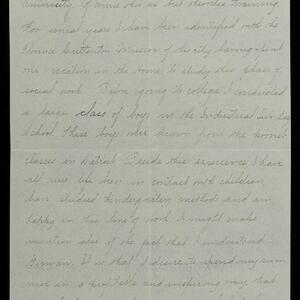 University. Of course this is but theoretic training.
For several years I have been identified with the
Florence Crittenton Mission of this city having spent
one vacation in the home to study this phase of
social work. Before going to college I conducted
a large class of boys in the Industrial Sunday
School these boys were drawn from the poorest
classes in Detroit. Beside this experience I have
all my life been in contact with children,
have studied kindergarten methods and am
happy in this line of work. I might make
mention also of the fact that I understand
German. It is that I desire to spend my sum-
mer in a profitable and inspiring way, that